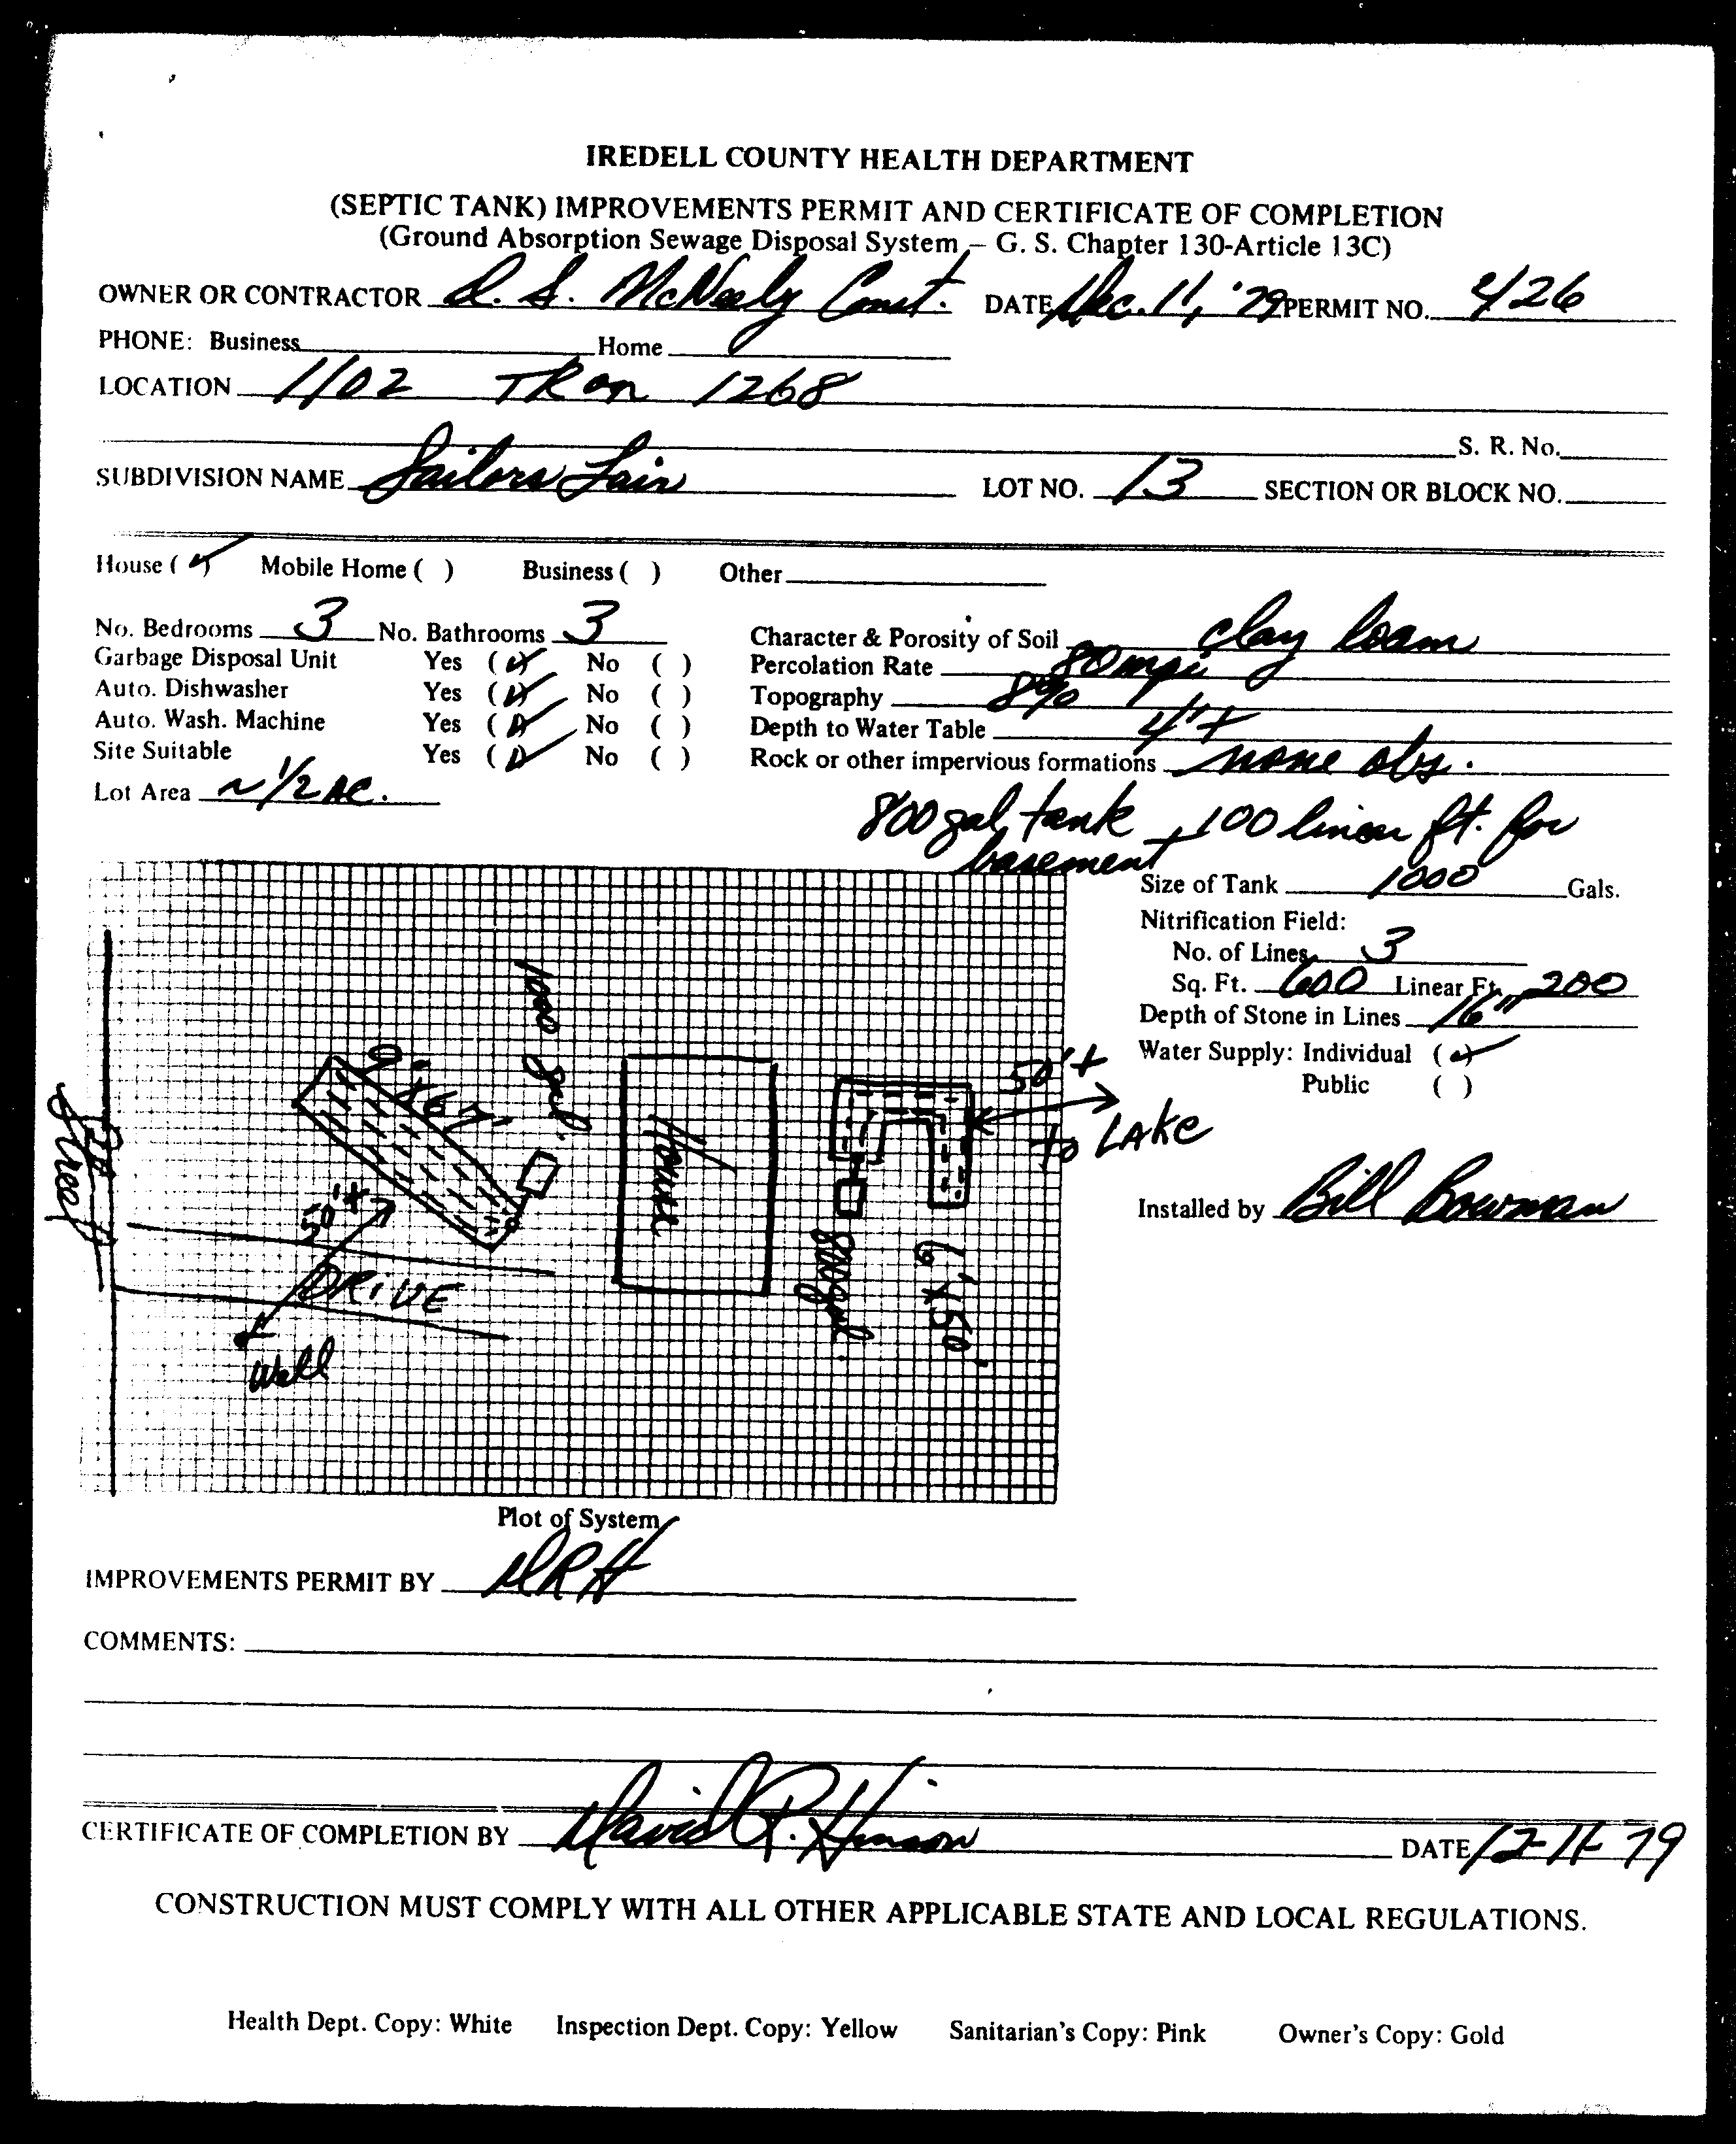 IREDELL COUNTY HEALTH DEPARTMENT
(SEPTIC TANK) IMPROVEMENTS PERMIT AND CERTIFICATE OF COMPLETION
(Ground Absorption Sewage Disposal System – G. S. Chapter 130-Article 13C)
OWNER OR CONTRACTOR S. McNeely Const. DATE Dec. 11, '79 PERMIT NO. 426
PHONE: Business Home
LOCATION 1102 TR on 1268
S. R. No.
SUBDIVISION NAME Sailors Lair LOT NO. 13 SECTION OR BLOCK NO.
House (✓) Mobile Home ( ) Business ( ) Other
No. Bedrooms 3 No. Bathrooms 3 Character & Porosity of Soil clay loam
Garbage Disposal Unit Yes (✓) No ( ) Percolation Rate 80 mpi
Auto. Dishwasher Yes (✓) No ( ) Topography 8%
Auto. Wash. Machine Yes (✓) No ( ) Depth to Water Table 4'+
Site Suitable Yes (✓) No ( ) Rock or other impervious formations none obs.
Lot Area ~ 1/2 AC.
800 gal tank + 100 linear ft. for
basement
Size of Tank 1000 Gals.
Nitrification Field:
No. of Lines 3
Sq. Ft. 600 Linear Ft. 200
Depth of Stone in Lines 16"
Water Supply: Individual (✓)
Public ( )
Installed by Bill Bowman
1000 gal.
House
50'+
to LAKE
Street
50'+
DRIVE
Well
800 gal.
6'X50'
Plot of System
IMPROVEMENTS PERMIT BY DRH
COMMENTS:
CERTIFICATE OF COMPLETION BY David R. Hinson DATE 12-11-79
CONSTRUCTION MUST COMPLY WITH ALL OTHER APPLICABLE STATE AND LOCAL REGULATIONS.
Health Dept. Copy: White Inspection Dept. Copy: Yellow Sanitarian's Copy: Pink Owner's Copy: Gold